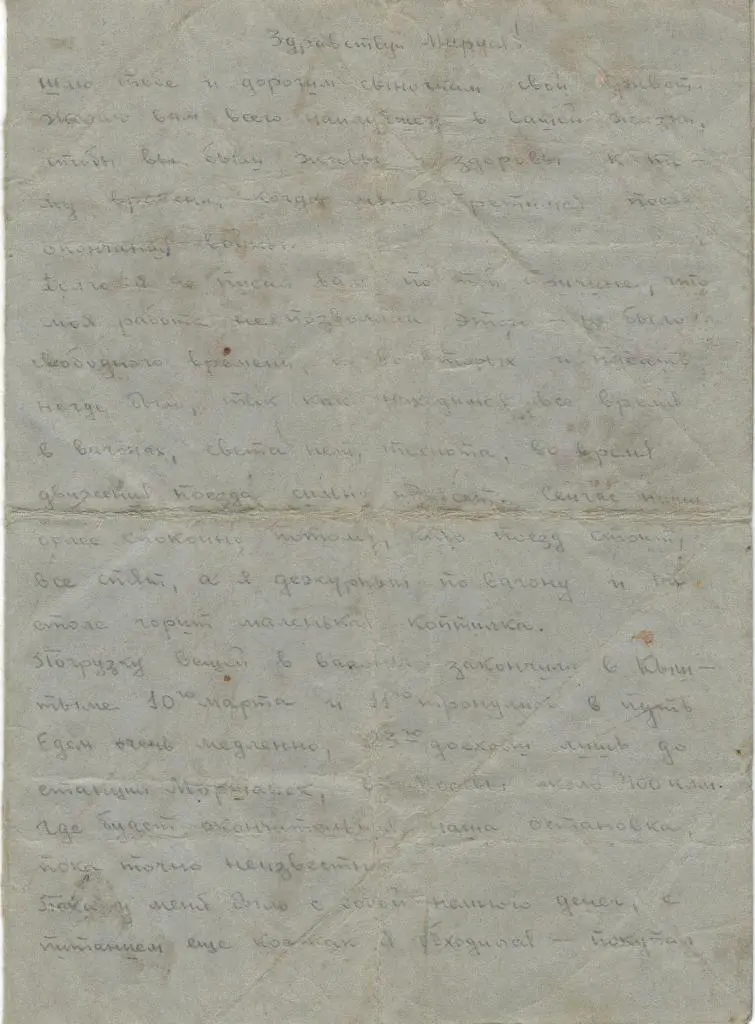 Здравствуй Маруся!
шлю тебе и дорогим сыночкам свой привет.
Желаю вам всего наилучшего в вашей жизни,
чтобы вы были живы и здоровы к то-
му времени, когда мы встретимся после
окончания войны.
Долго я не писал вам по той причине, что
моя работа не позволяла этой — не было
свободного времени, а во вторых и писать
негде было, так как находимся все время
в вагонах, света нет, теснота, во время
движения поезда сильно трясет. Сейчас
более спокойно потому, что поезд стоит,
все спят, а я дежурный по вагону и на
столе горит маленькая коптилка.
Погрузку вещей в вагоны закончили в Кыш-
тыме 10го марта и 11го тронулись в путь
Едем очень медленно, 23го доехали лишь до
станции Моршанск, от Москвы около 400 клм.
где будет окончательная наша остановка,
пока точно неизвестно.
Пока у меня было с собой немного денег, с
питанием еще кое-как я обходился — покупал